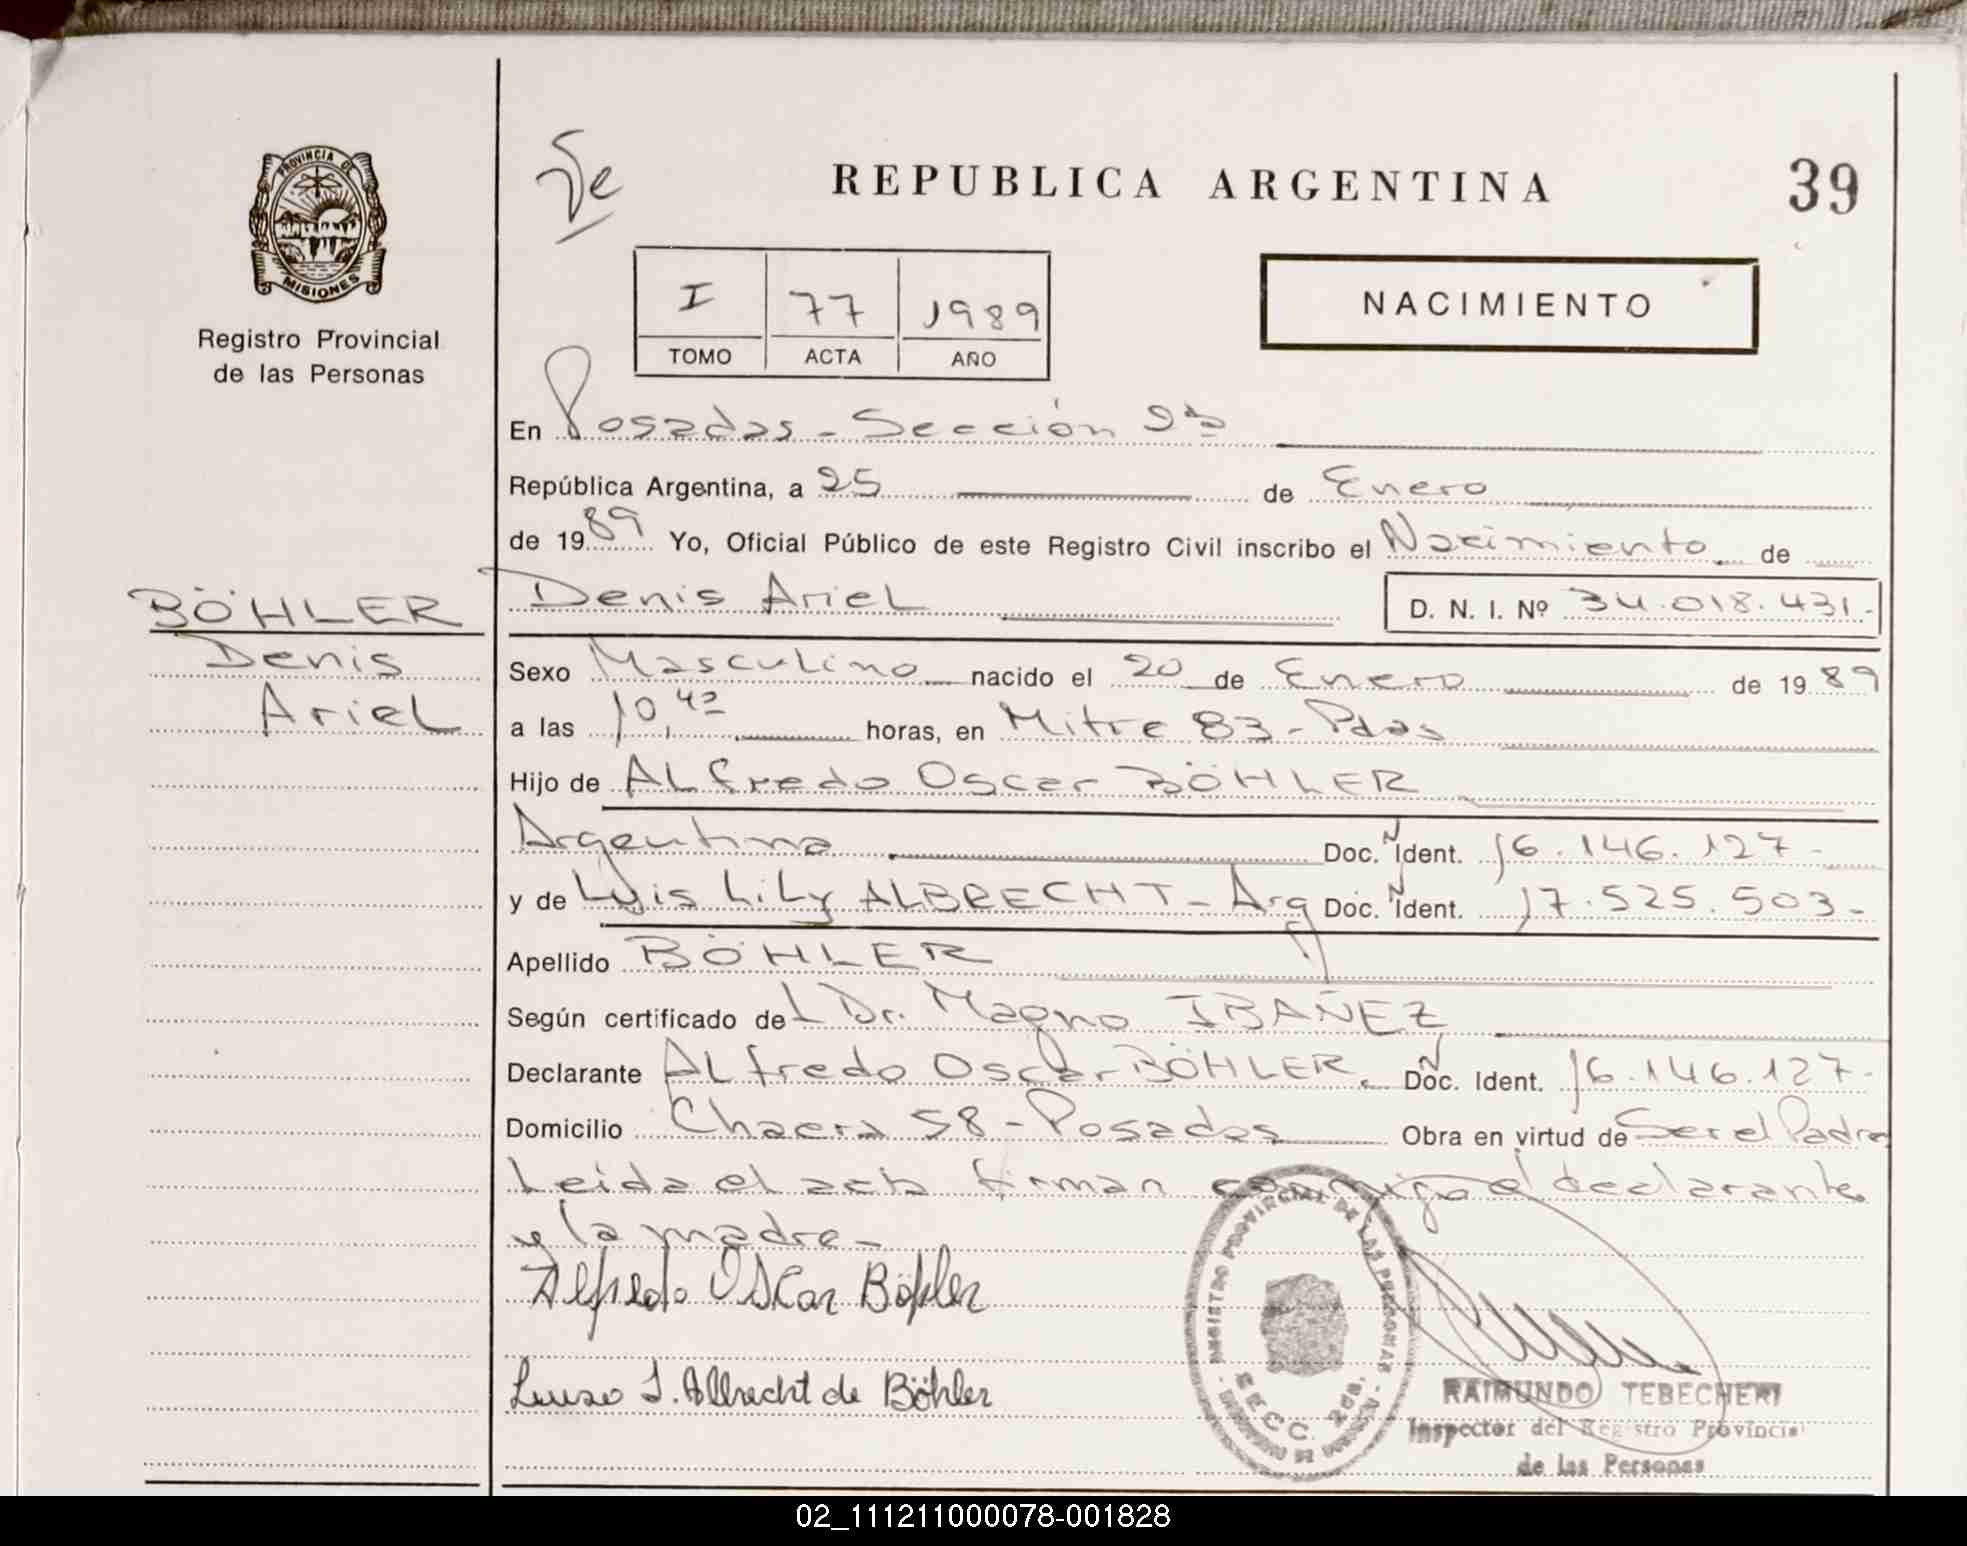 PROVINCIA DE
MISIONES
Registro Provincial
de las Personas
REPUBLICA ARGENTINA
39
I 77 1989
TOMO ACTA AÑO
NACIMIENTO
En Posadas - Sección 2da
República Argentina, a 25 de Enero
de 1989 Yo, Oficial Público de este Registro Civil inscribo el Nacimiento de
BÖHLER
Denis
Ariel
Denis Ariel D. N. I. Nº 34.018.431.-
Sexo Masculino nacido el 20 de Enero de 1989
a las 10, horas, en Mitre 83 - Pdas
Hijo de Alfredo Oscar BÖHLER
Argentina Doc. N Ident. 16.146.127-
y de Lily ALBRECHT - Arg Doc. N Ident. 17.525.503-
Apellido BÖHLER
Según certificado del Dr. Magno IBAÑEZ
Declarante Alfredo Oscar BÖHLER. N Doc. Ident. 16.146.127-
Domicilio Chacra 58 - Posadas Obra en virtud de Ser el Padre
Leida el acta firman conmigo el declarante
y la madre -
Alfredo Oscar Böhler
L. Albrecht de Böhler
REGISTRO PROVINCIAL DE LAS PERSONAS
SECC. 2da.
RAIMUNDO TEBECHERI
Inspector del Registro Provincial
de las Personas
02_111211000078-001828